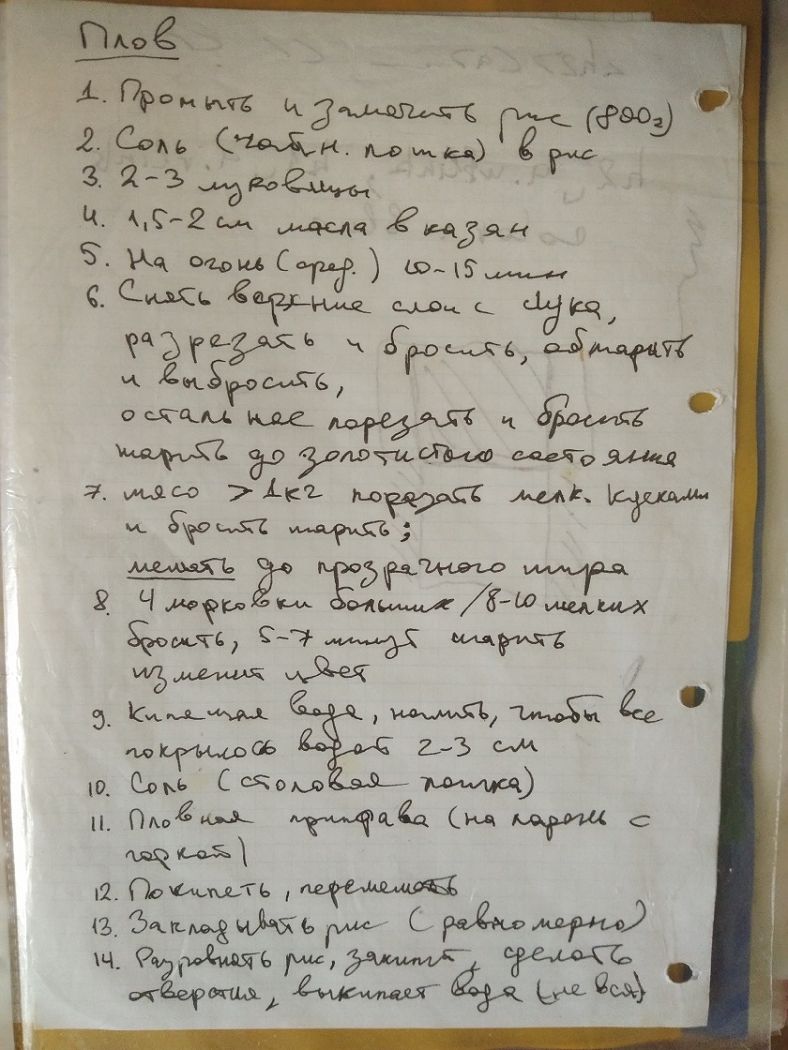 Плов
1. Промыть и замочить рис (800г)
2. Соль (чайн. ложка) в рис
3. 2-3 луковицы
4. 1,5-2 см масла в казан
5. На огонь (сред.) 10-15 мин
6. Снять верхние слои с лука,
разрезать и бросить, обжарить
и выбросить,
остальное порезать и бросить
жарить до золотистого состояния
7. мясо > 1кг порезать мелк. кусками
и бросить жарить;
мешать до прозрачного жира
8. 4 морковки больших/8-10 мелких
бросить, 5-7 минут жарить
изменит цвет
9. Кипящая вода, налить, чтобы все
покрылось водой 2-3 см
10. Соль (столовая ложка)
11. Пловная приправа (на ладонь с
горкой)
12. Покипеть, перемешать
13. Закладывать рис (равномерно)
14. Разровнять рис, закипит, сделать
отверстия, выкипает вода (не вся)